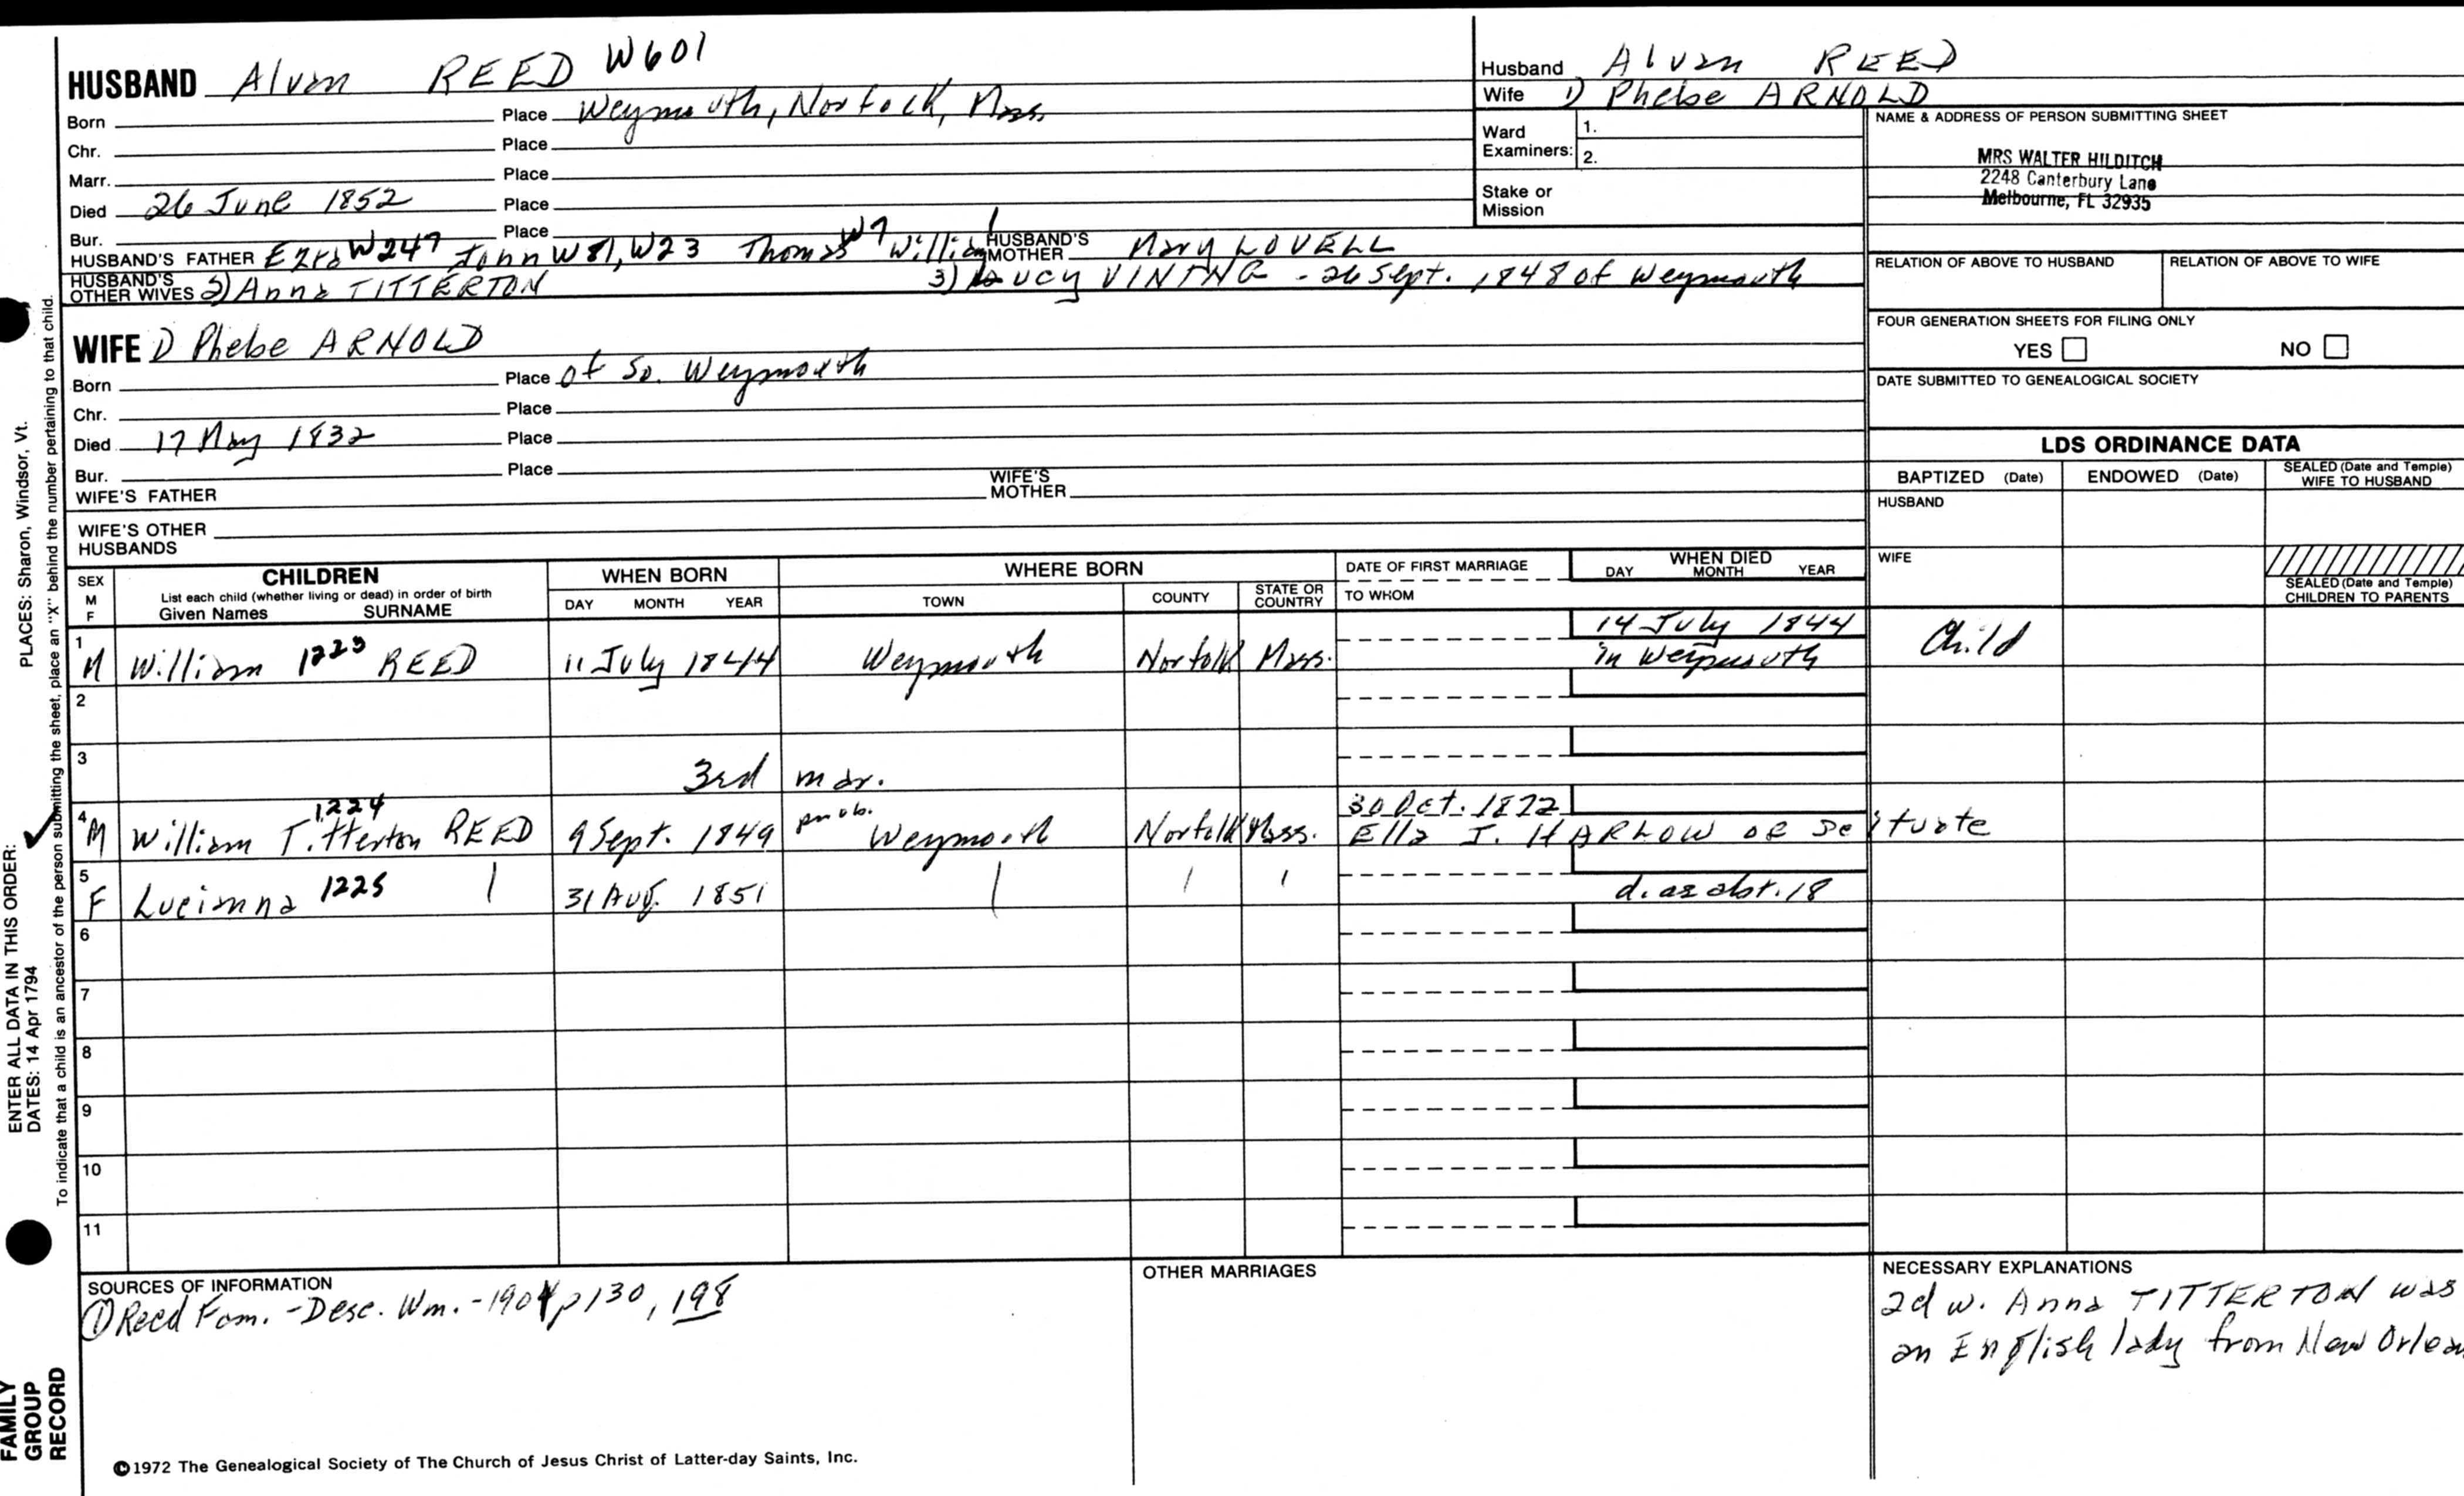 HUSBAND Alvan REED W601
Born Place Weymouth, Norfolk, Mass.
Chr. Place
Marr. Place
Died 26 June 1852 Place
Bur. Place
HUSBAND'S FATHER Ezra W247 John W81, W23 Thomas W7 William 1 HUSBAND'S MOTHER Mary LOVELL
HUSBAND'S OTHER WIVES 2) Anna TITTERTON 3) Lucy VINING - 26 Sept. 1848 of Weymouth
WIFE 1) Phebe ARNOLD
Born Place of So. Weymouth
Chr. Place
Died 17 May 1832 Place
Bur. Place
WIFE'S FATHER WIFE'S MOTHER
WIFE'S OTHER HUSBANDS
Husband Alvan REED
Wife 1) Phebe ARNOLD
Ward Examiners: 1.
2.
Stake or Mission
NAME & ADDRESS OF PERSON SUBMITTING SHEET
MRS WALTER HILDITCH
2248 Canterbury Lane
Melbourne, FL 32935
RELATION OF ABOVE TO HUSBAND RELATION OF ABOVE TO WIFE
FOUR GENERATION SHEETS FOR FILING ONLY
YES NO
DATE SUBMITTED TO GENEALOGICAL SOCIETY
LDS ORDINANCE DATA
BAPTIZED (Date) ENDOWED (Date) SEALED (Date and Temple) WIFE TO HUSBAND
HUSBAND
WIFE
SEALED (Date and Temple) CHILDREN TO PARENTS
SEX M F
CHILDREN
List each child (whether living or dead) in order of birth
Given Names SURNAME
WHEN BORN
DAY MONTH YEAR
WHERE BORN
TOWN COUNTY STATE OR COUNTRY
DATE OF FIRST MARRIAGE
TO WHOM
WHEN DIED
DAY MONTH YEAR
1 M William 1223 REED 11 July 1844 Weymouth Norfolk Mass. 14 July 1844 in Weymouth Child
2
3
3rd mar.
4 M William Titterton 1224 REED 9 Sept. 1849 prob. Weymouth Norfolk Mass. 30 Oct. 1872 Ella I. HARLOW of Scituate
5 F Lucianna 1225 31 Aug. 1851 d. ae abt. 18
6
7
8
9
10
11
SOURCES OF INFORMATION
① Reed Fam. - Desc. Wm. - 1904 p 130, 198
OTHER MARRIAGES
NECESSARY EXPLANATIONS
2d w. Anna TITTERTON was
an English lady from New Orlea
©1972 The Genealogical Society of The Church of Jesus Christ of Latter-day Saints, Inc.
FAMILY GROUP RECORD
ENTER ALL DATA IN THIS ORDER:
DATES: 14 Apr 1794
PLACES: Sharon, Windsor, Vt.
To indicate that a child is an ancestor of the person submitting the sheet, place an "X" behind the number pertaining to that child.